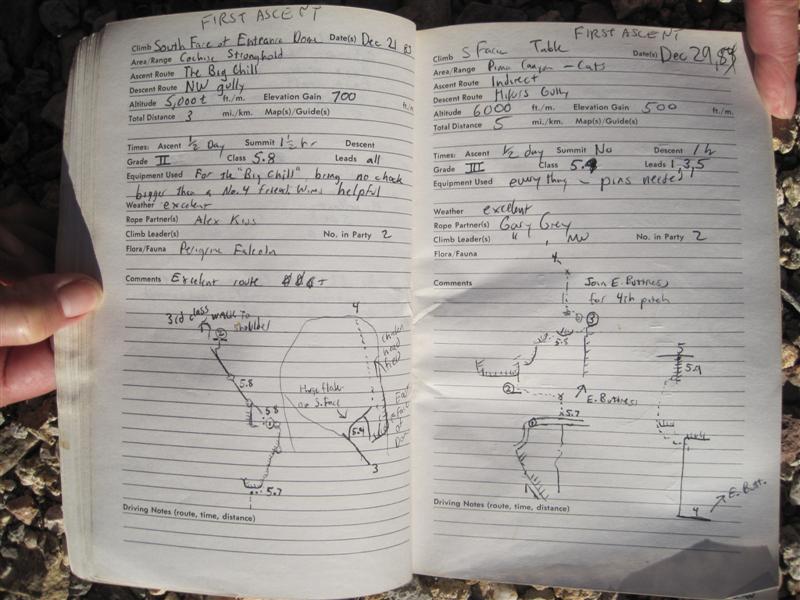 FIRST ASCENT
Climb South Face of Entrance Dome Date(s) Dec 21 83
Area/Range Cochise Stronghold
Ascent Route The Big Chill
Descent Route NW gully
Altitude 5,000± ft./m. Elevation Gain 700 ft/m.
Total Distance 3 mi./km. Map(s)/Guide(s)
Times: Ascent 1/2 Day Summit 1 1/2 hr Descent
Grade II Class 5.8 Leads all
Equipment Used For the "Big Chill" bring no chock
bigger than a No. 4 Friend, Wires helpful
Weather excellent
Rope Partner(s) Alex Kiss
Climb Leader(s) No. in Party 2
Flora/Fauna Peregrine Falcoln
Comments Excellent route
3rd class WALK To
shoulder
2
5.8
5.8
1
5.7
4
Huge flake
on S. Face
5.9
3
East
face
of
Dome
Driving Notes (route, time, distance)
FIRST ASCENT
Climb S Face Table Date(s) Dec 29, 83
Area/Range Pima Canyon - Cats
Ascent Route Indirect
Descent Route Hikers Gully
Altitude 6000 ft./m. Elevation Gain 500 ft./m.
Total Distance 5 mi./km. Map(s)/Guide(s)
Times: Ascent 1/2 day Summit No Descent 1 h
Grade III Class 5.9 Leads 1,3,5
Equipment Used everything - pins needed
Weather excellent
Rope Partner(s) Gary Grey
Climb Leader(s) " , MW No. in Party 2
Flora/Fauna
Comments
4
Join E. Buttress
for 4th pitch
3
5.8
2
E. Buttress
5.7
1
5
5.9
4
E. Butt.
Driving Notes (route, time, distance)